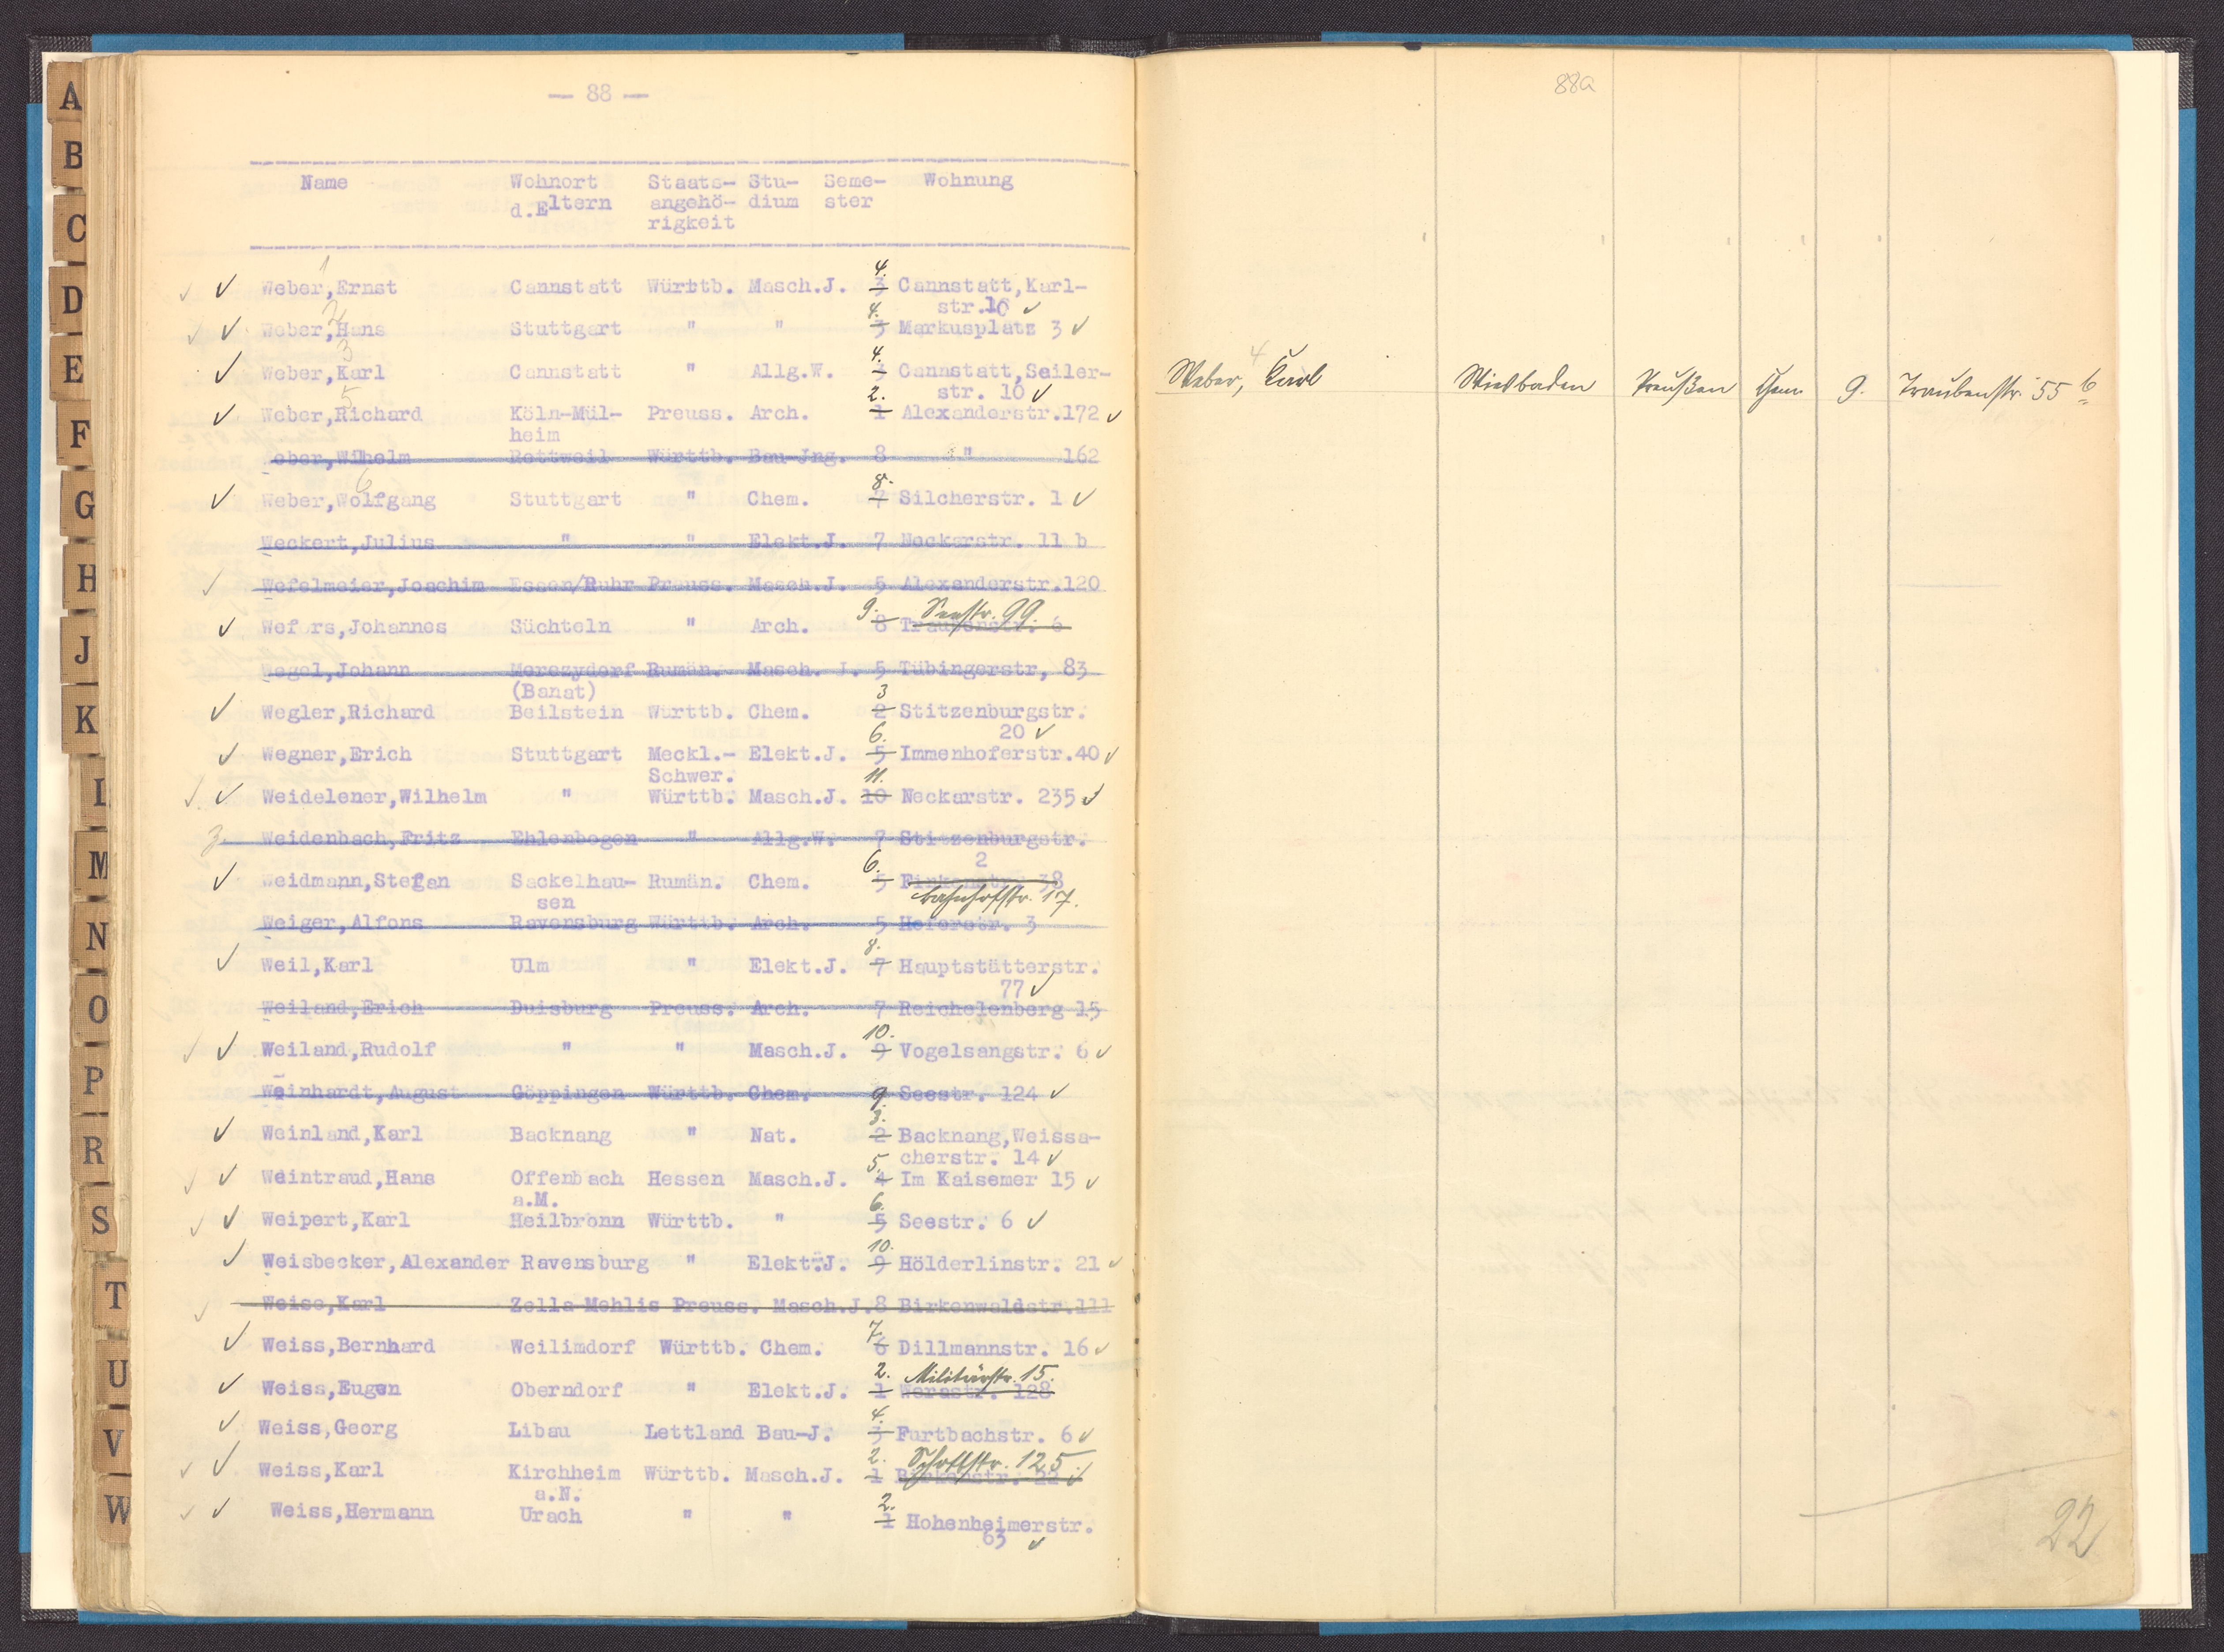 — 88 —
Name Wohnort Staats- Stu- Seme- Wohnung
d.Eltern angehö- dium ster
rigkeit
1
4.
✓ ✓ Weber,Ernst Cannstatt Württb. Masch.J. 3 Cannstatt,Karl-
str.10 ✓
2 4.
✓ ✓ Weber,Hans Stuttgart " " 3 Markusplatz 3 ✓
3 4.
✓ Weber,Karl Cannstatt " Allg.W. 3 Cannstatt,Seiler-
str. 10 ✓
5 2.
✓ Weber,Richard Köln-Mül- Preuss. Arch. 1 Alexanderstr.172 ✓
heim
Weber,Wilhelm Rottweil Württb. Bau-Jng. 8 " 162
6 8.
✓ Weber,Wolfgang Stuttgart " Chem. 7 Silcherstr. 1 ✓
Weckert,Julius " " Elekt.J. 7 Neckarstr. 11 b
✓ Wefelmeier,Joachim Essen/Ruhr Preuss. Masch.J. 5 Alexanderstr.120
9. Seestr. 99.
✓ Wefers,Johannes Süchteln " Arch. 8 Traubenstr. 6
Wegel,Johann Merczydorf Rumän. Masch. J. 5 Tübingerstr, 83
(Banat) 3
✓ Wegler,Richard Beilstein Württb. Chem. 2 Stitzenburgstr.
20 ✓
6.
✓ Wegner,Erich Stuttgart Meckl.- Elekt.J. 5 Immenhoferstr.40 ✓
Schwer. 11.
✓ ✓ Weidelener,Wilhelm " Württb. Masch.J. 10 Neckarstr. 235 ✓
Weidenbach,Fritz Ehlenbogen " Allg.W. 7 Stitzenburgstr.
2
6.
✓ Weidmann,Stefan Sackelhau- Rumän. Chem. 5 Finkenstr. 38
sen Bahnhofstr. 17.
Weiger,Alfons Ravensburg Württb. Arch. 5 Hoferstr. 3
8.
✓ Weil,Karl Ulm " Elekt.J. 7 Hauptstätterstr.
77 ✓
Weiland,Erich Duisburg Preuss. Arch. 7 Reichelenberg 15
10.
✓ ✓ Weiland,Rudolf " " Masch.J. 9 Vogelsangstr. 6 ✓
Weinhardt,August Göppingen Württb. Chem. 9 Seestr. 124 ✓
3.
✓ Weinland,Karl Backnang " Nat. 2 Backnang,Weissa-
cherstr. 14 ✓
5.
✓ ✓ Weintraud,Hans Offenbach Hessen Masch.J. 4 Im Kaisemer 15 ✓
a.M. 6.
✓ ✓ Weipert,Karl Heilbronn Württb. " 5 Seestr. 6 ✓
10.
✓ Weisbecker,Alexander Ravensburg " Elekt.J. 9 Hölderlinstr. 21 ✓
✓ Weise,Karl Zella Mehlis Preuss. Masch.J.8 Birkenwaldstr.111
7.
✓ Weiss,Bernhard Weilimdorf Württb. Chem. 6 Dillmannstr. 16 ✓
2. Militärstr. 15.
✓ Weiss,Eugen Oberndorf " Elekt.J. 1 Werastr. 128
4.
✓ Weiss,Georg Libau Lettland Bau-J. 3 Furtbachstr. 6 ✓
2. Schottstr. 125.
✓ ✓ Weiss,Karl Kirchheim Württb. Masch.J. 1 Birkenstr. 22 ✓
a.N. 2.
✓ ✓ Weiss,Hermann Urach " " 1 Hohenheimerstr.
63 ✓
88a
4
Weber, Karl Wiesbaden Preußen Chem 9. Traubenstr. 55 b
22
A
B
C
D
E
F
G
H
J
K
L
M
N
O
P
R
S
T
U
V
W